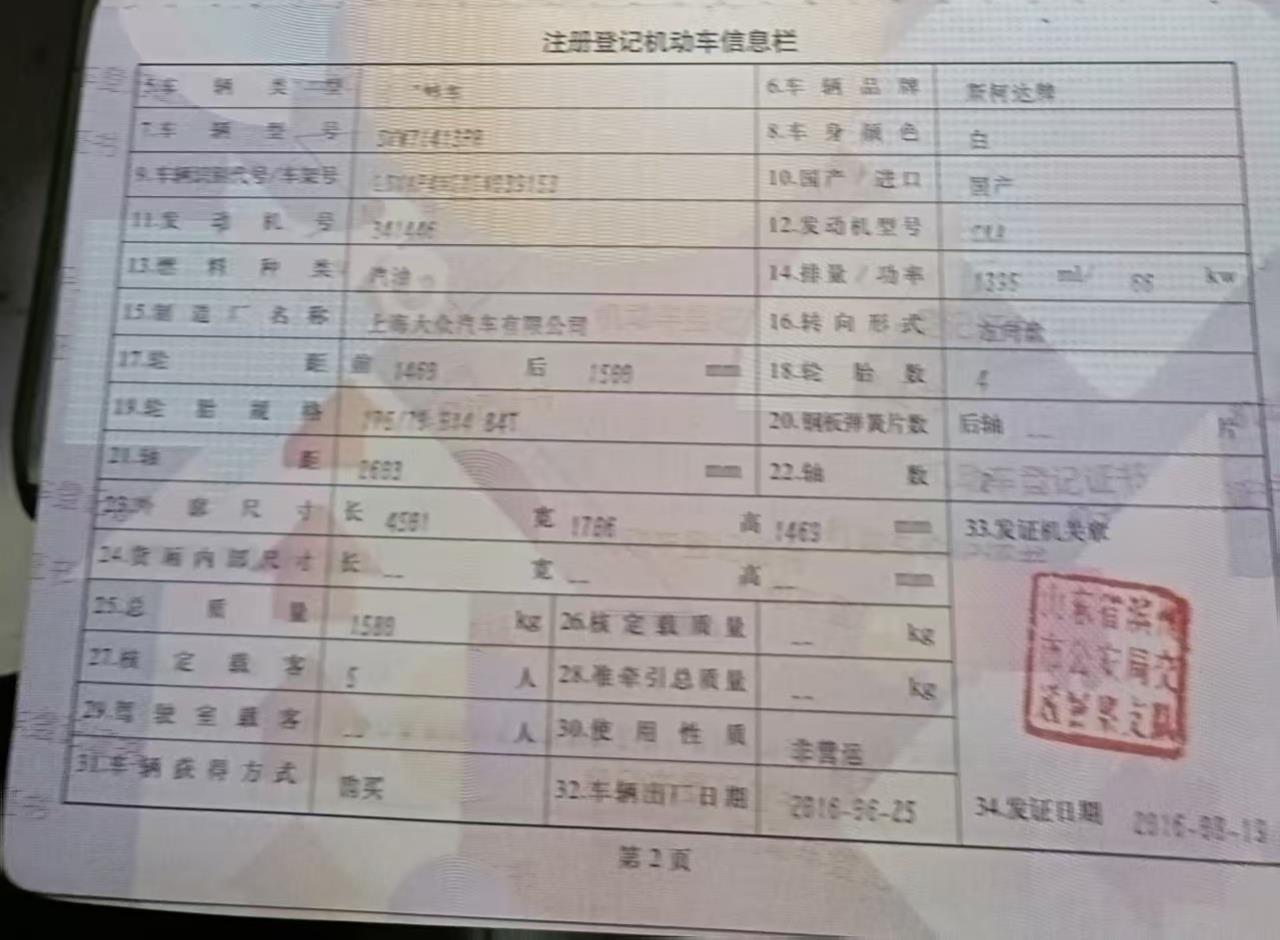 注册登记机动车信息栏
5.车辆类型 6.车辆品牌 斯柯达牌
7.车辆型号 8.车身颜色 白
9.车辆识别代号/车架号 10.国产/进口 国产
11.发动机号 341446 12.发动机型号
13.燃料种类 汽油 14.排量/功率 ml/ 66 kw
15.制造厂名称 上海大众汽车有限公司 16.转向形式 方向盘
17.轮距 前 1469 后 1500 mm 18.轮胎数 4
19.轮胎规格 84T 20.钢板弹簧片数 后轴 -- 片
21.轴距 2603 mm 22.轴数 2
23.外廓尺寸 长 4501 宽 1706 高 1469 mm 33.发证机关章
24.货厢内部尺寸 长 -- 宽 -- 高 -- mm
25.总质量 kg 26.核定载质量 -- kg
27.核定载客 5 人 28.准牵引总质量 -- kg
29.驾驶室载客 -- 人 30.使用性质 非营运
31.车辆获得方式 购买 32.车辆出厂日期 34.发证日期
山东省滨州
市公安局交
通警察支队
第2页